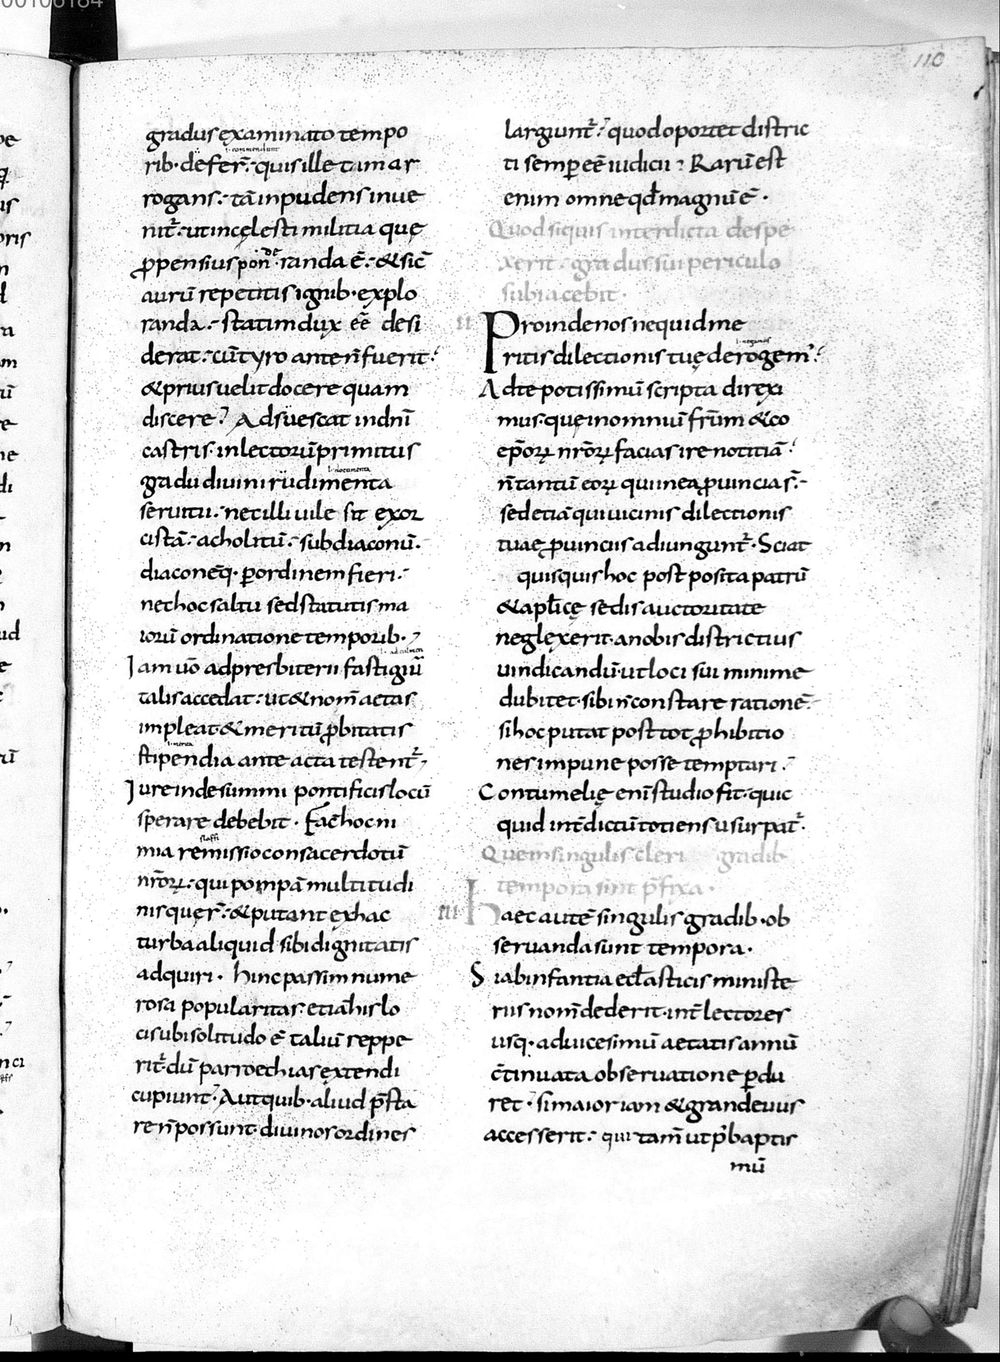 110
gradus examinato tempo
rib· defer̅. quis ille tam ar
rogans. tā inpudens inue
nit̅. ut in cęlesti militia quę
ꝓpensius ponderanda ē. & sic̅
aurū repetitis ignib· explo
randa. statim dux eē desi
derat. cū tyro ante n̅ fuerit.
& prius uelit docere quam
discere? Adsuescat in dn̅i
castris. in lectorū primitus
gradu diuini rudimenta
seruitii. nec illi uile sit exor
cistā. acholitū. subdiaconū.
diaconēq· ꝑ ordinem fieri.
nec hoc saltu sed statutis ma
iorū ordinatione temporib·
Iam uo̅ ad presbiterii fastigiū
talis accedat. ut & nom̅ aetas
impleat & meritū ꝓbitatis
stipendia ante acta testent̅.
Iure inde summi pontificis locū
sperare debebit. Fac̅ hoc ni
mia remissio consacerdotū
nr̅oꝝ. qui pompā multitudi
nis quer̅. & putant ex hac
turba aliquid sibi dignitatis
adquiri. hinc passim nume
rosa popularitas. etiā his lo
cis ubi solitudo ē taliū reppe
rit̅. dū parroechias extendi
cupiunt. Aut quib· aliud p̅sta
re n̅ possunt diuinos ordines
largiunt̅. quod oportet distric
ti semꝑ eē iudicii. Rarū est
enim omne qd̅ magnū ē.
Quod siquis interdicta despe
xerit. gradus sui periculo
subiacebit.
II Proinde nos ne quid me
ritis dilectionis tuę derogem̅.
Ad te potissimū scripta direxi
mus. quę in omniū fr̅um & co
ep̅oꝝ nr̅oꝝ facias ire notitiā.
n̅ tantū eoꝝ qui in ea ꝓuincia s̅.
sed etiā qui uicinis dilectionis
tuae ꝓuinciis adiungunt̅. Sciat
quisquis hoc post posita patrū
& apl̅icę sedis auctoritate
neglexerit. a nobis districtius
uindicandū. ut loci sui minime
dubitet. sibi n̅ constare rationē.
si hoc putat post tot ꝓhibitio
nes impune posse temptari.
Contumelię eni̅ studio fit. quic
quid int̅dictū totiens usurpat̅.
Quem singulis cleri gradib·
tempora sint p̅fixa.
III Haec autē singulis gradib· ob
seruanda sunt tempora.
Si ab infantia eccl̅asticis ministe
riis nom̅ dederit. int̅ lectores
usq· ad uicesimū aetatis annū
c̅tinuata obseruatione ꝑdu
ret. si maior iam & grandeuus
accesserit. qui tam̅ ut p̅ baptis
mū